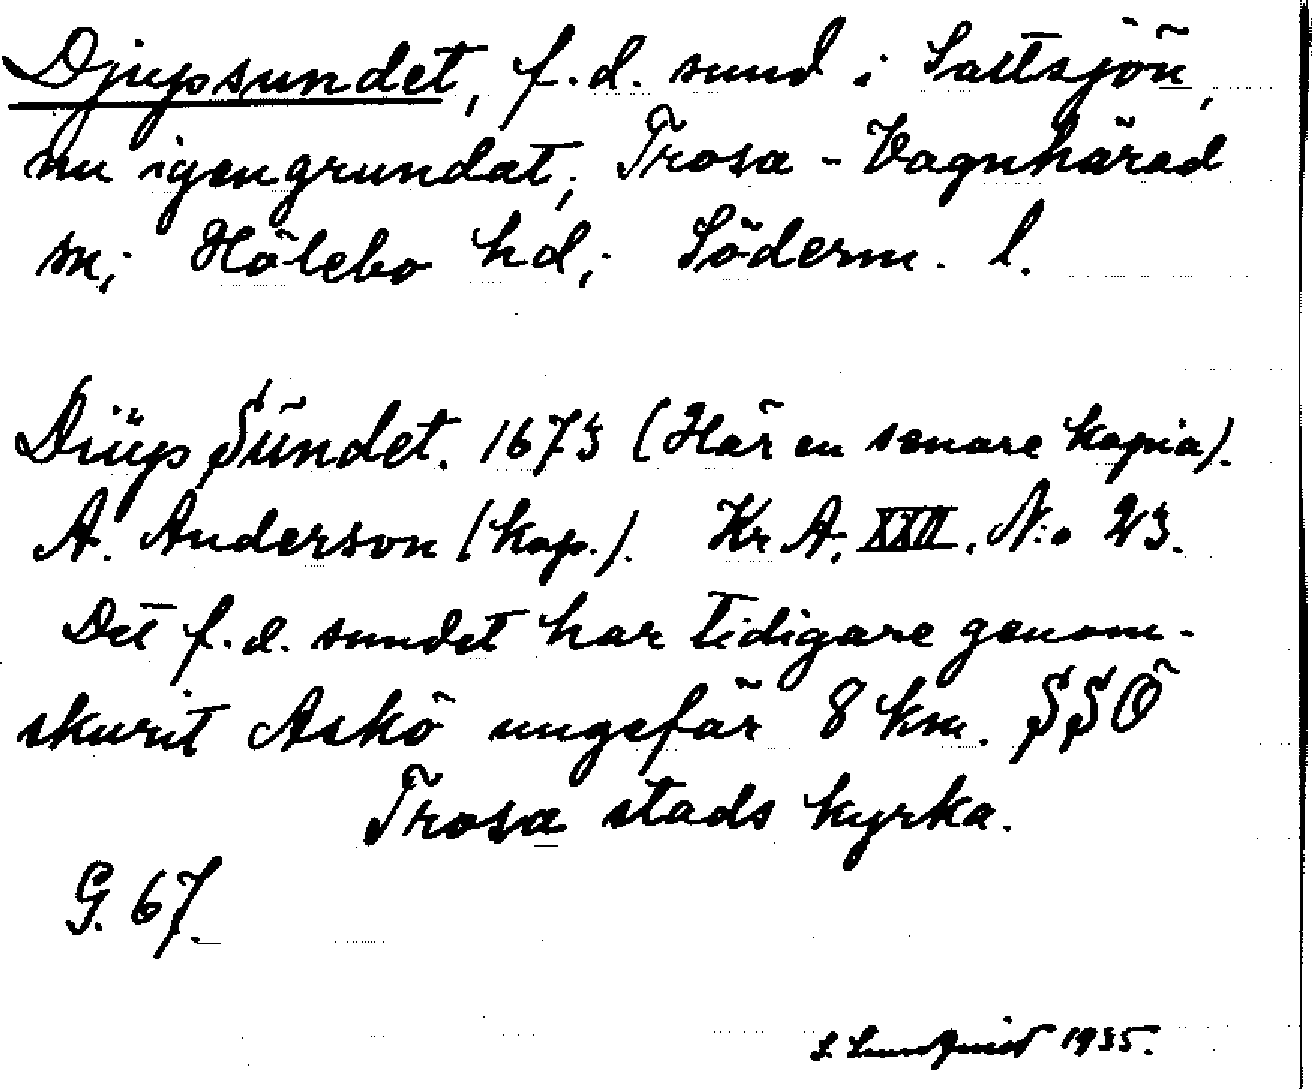 Djupsundet, f.d. sund i Saltsjön,
nu igengrundat; Trosa-Vagnhärad
sn; Hölebo hd; Söderm. l.
Diüp Sündet. 1673 (Här en senare kopia).
A. Anderson (kop.). Kr A. XXII. N:o 23.
Det f.d. sundet har tidigare genom-
skurit Askö ungefär 8 km. SSÖ
Trosa stads kyrka.
G. 67.
S. Lundquist 1935.